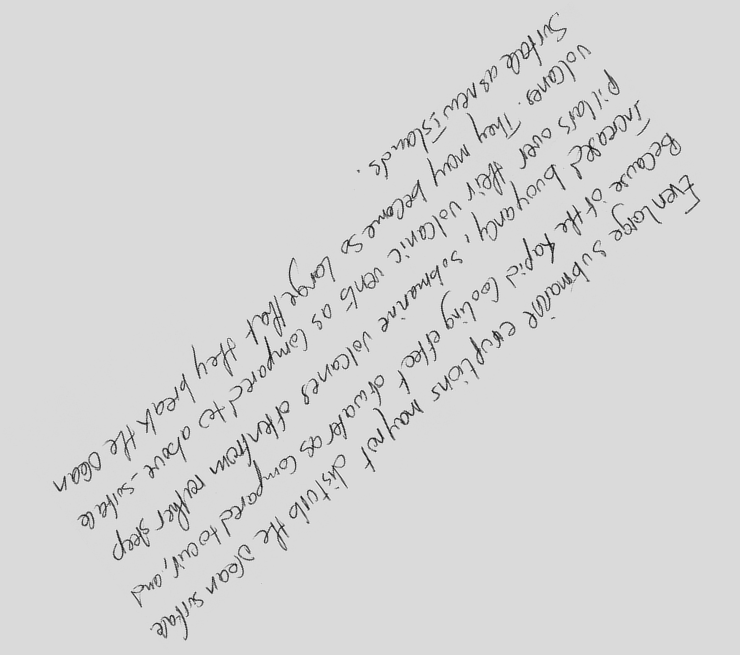 Even large submarine eruptions may not disturb the ocean surface
Because of the rapid cooling effect of water as compared to air, and
Increased buoyancy, submarine volcanes often from rether steep
pillars over their volcanic vents as compared to above-surface
volcanes. They may become so large that they break the ocean
Surface as new islands.